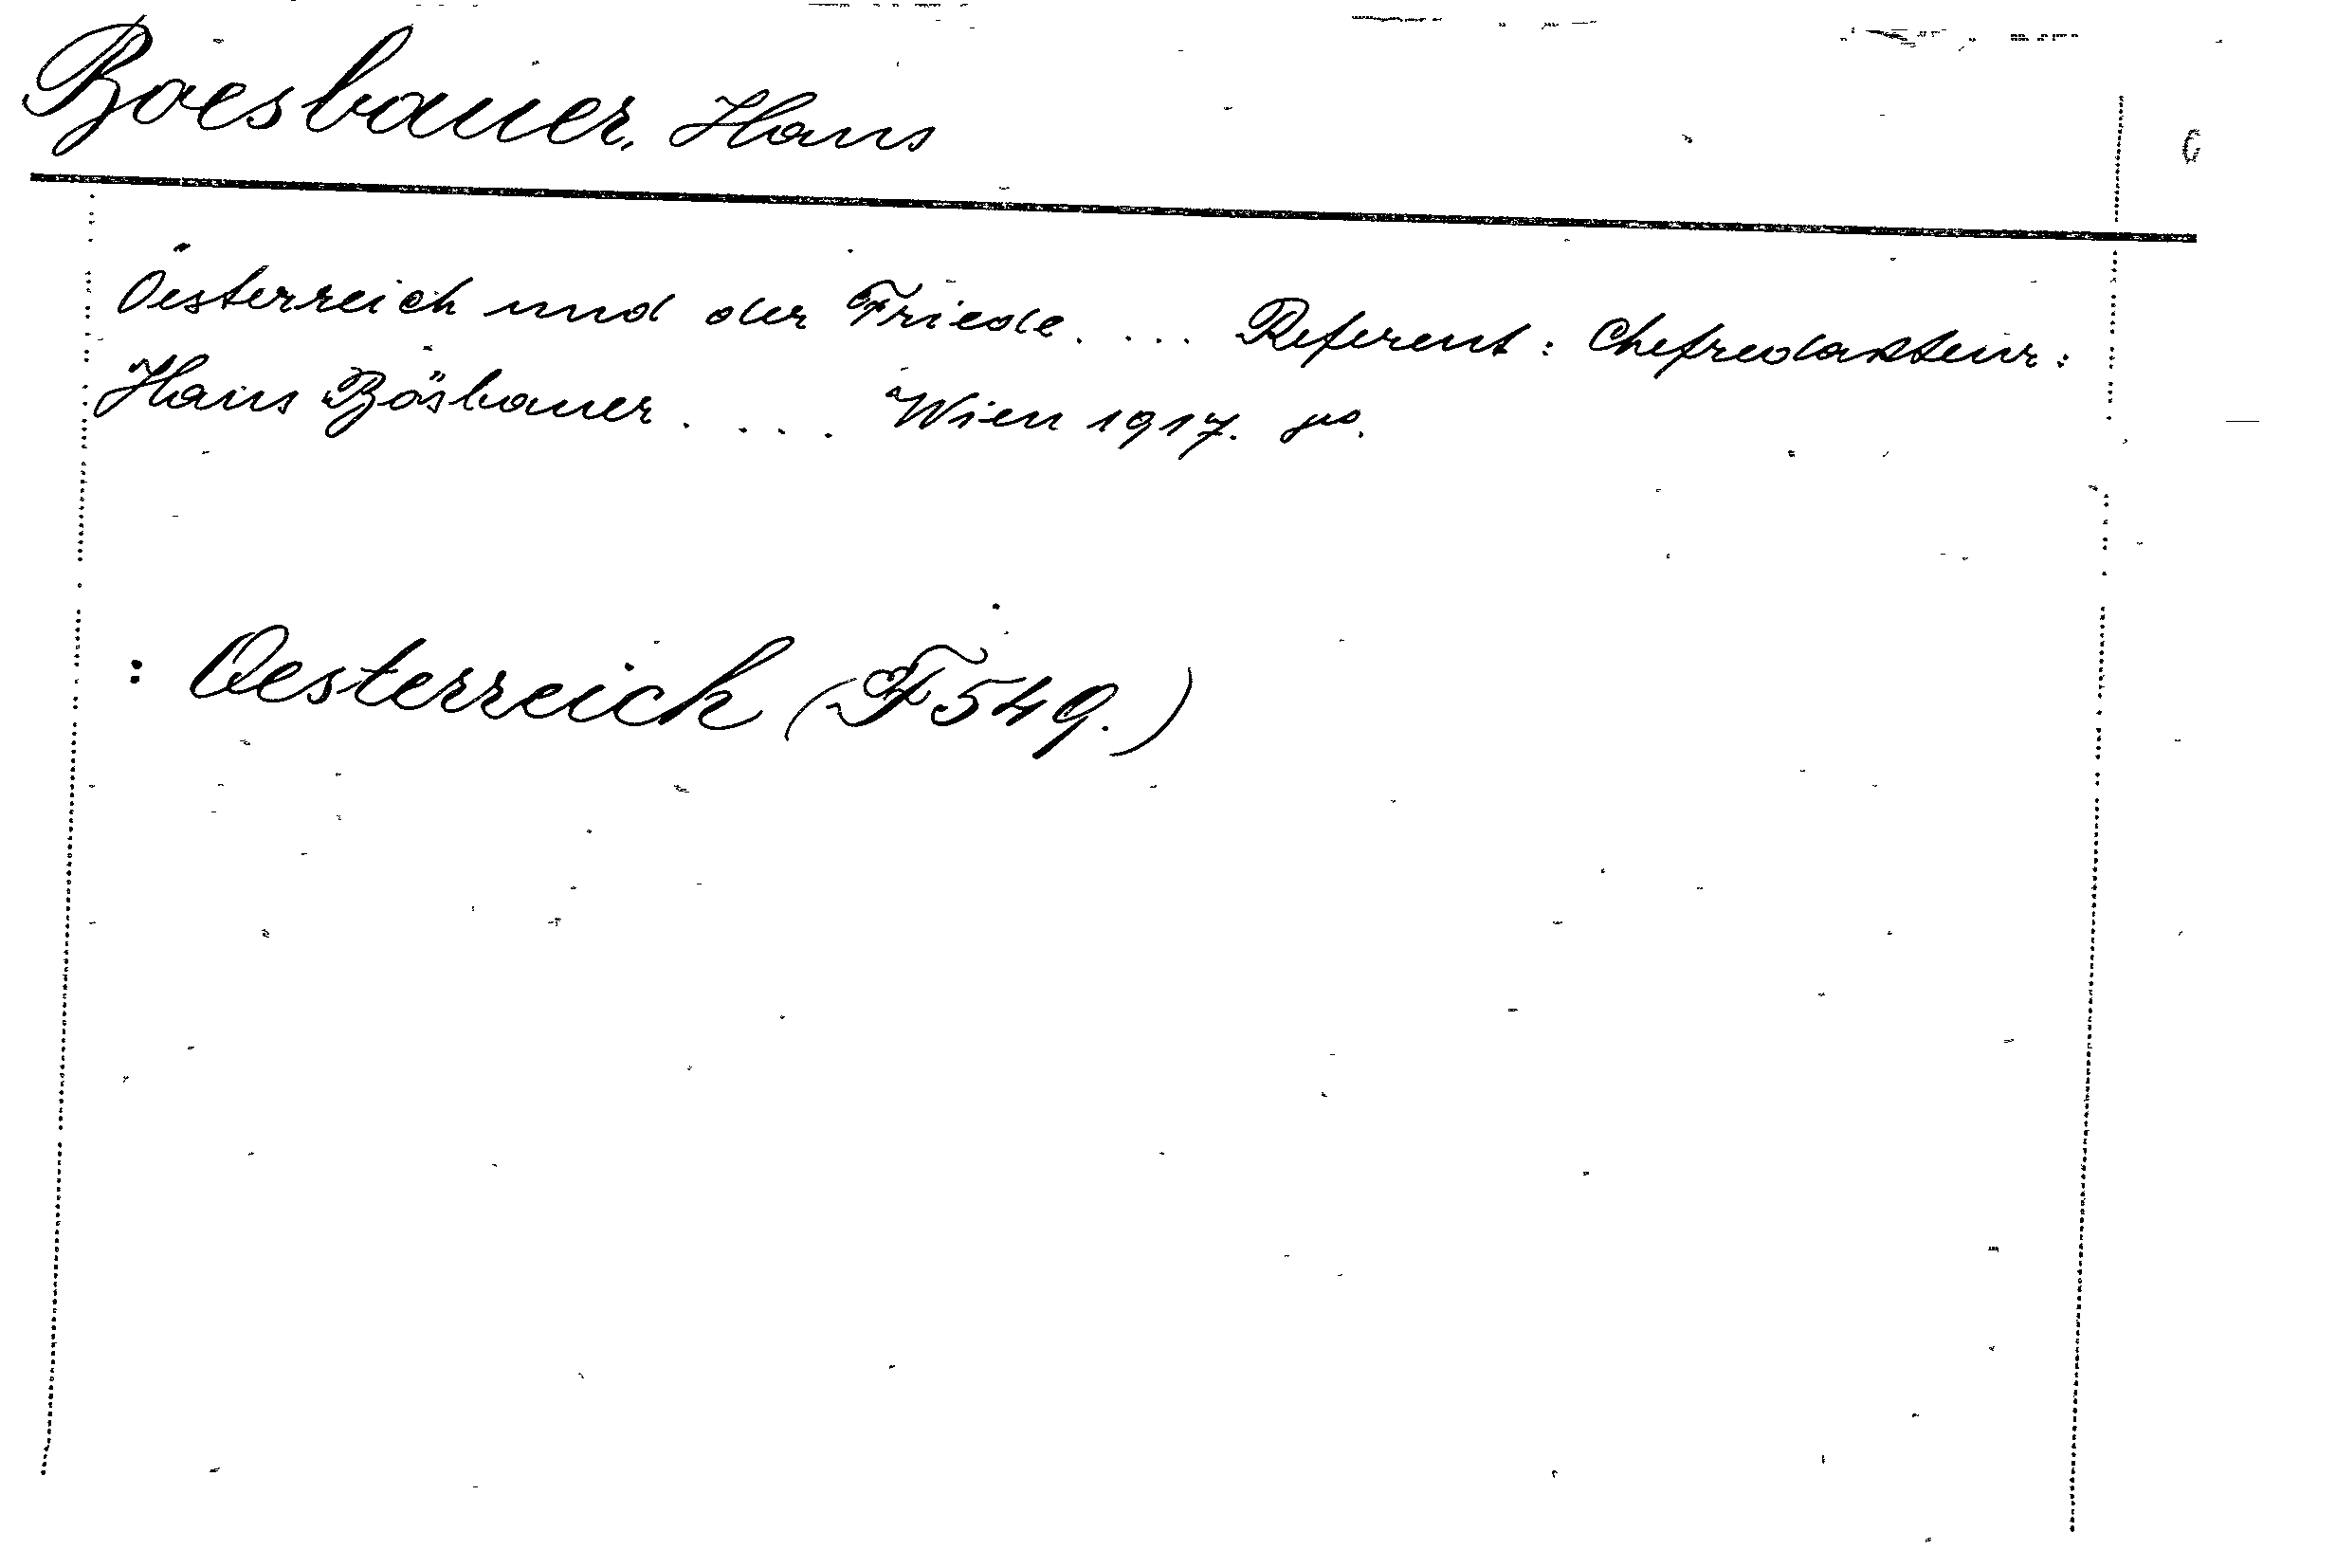 Boesbauer, Hans
Oesterreich und der Friede. ... Referent: Chefredakteur:
Hans Bösbauer .... Wien 1917. 8o.
: Oesterreich (F 549.)